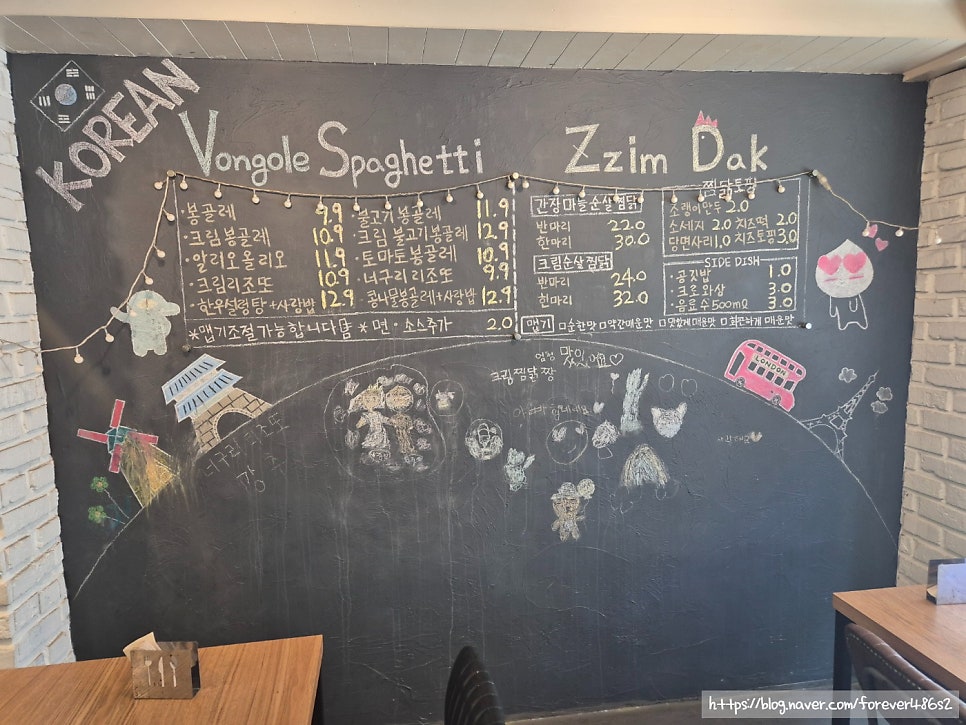 KOREAN
Vongole Spaghetti
·봉골레 9.9
·크림봉골레 10.9
·알리오올리오 11.9
·크림리조또 10.9
·한우설렁탕+사랑밥 12.9
·불고기 봉골레 11.9
·크림 불고기봉골레 12.9
·토마토봉골레 10.9
·너구리 리조또 9.9
·콩나물봉골레+사랑밥 12.9
*맵기조절 가능합니다 * 면·소스추가 2.0
Zzim Dak
간장마늘순살찜닭
반마리 22.0
한마리 30.0
크림순살찜닭
반마리 24.0
한마리 32.0
찜닭토핑
소랭이만두 2.0
소세지 2.0 치즈떡 2.0
당면사리 1.0 치즈토핑 3.0
SIDE DISH
·공깃밥 1.0
·크로와상 3.0
·음료수500ml 3.0
맵기 □순한맛 □약간매운맛 □맛있게매운맛 □화끈하게 매운맛
엄청 맛있어요♡
크림찜닭 짱
LONDON
너구리 리조또
강추
https://blog.naver.com/forever486s2